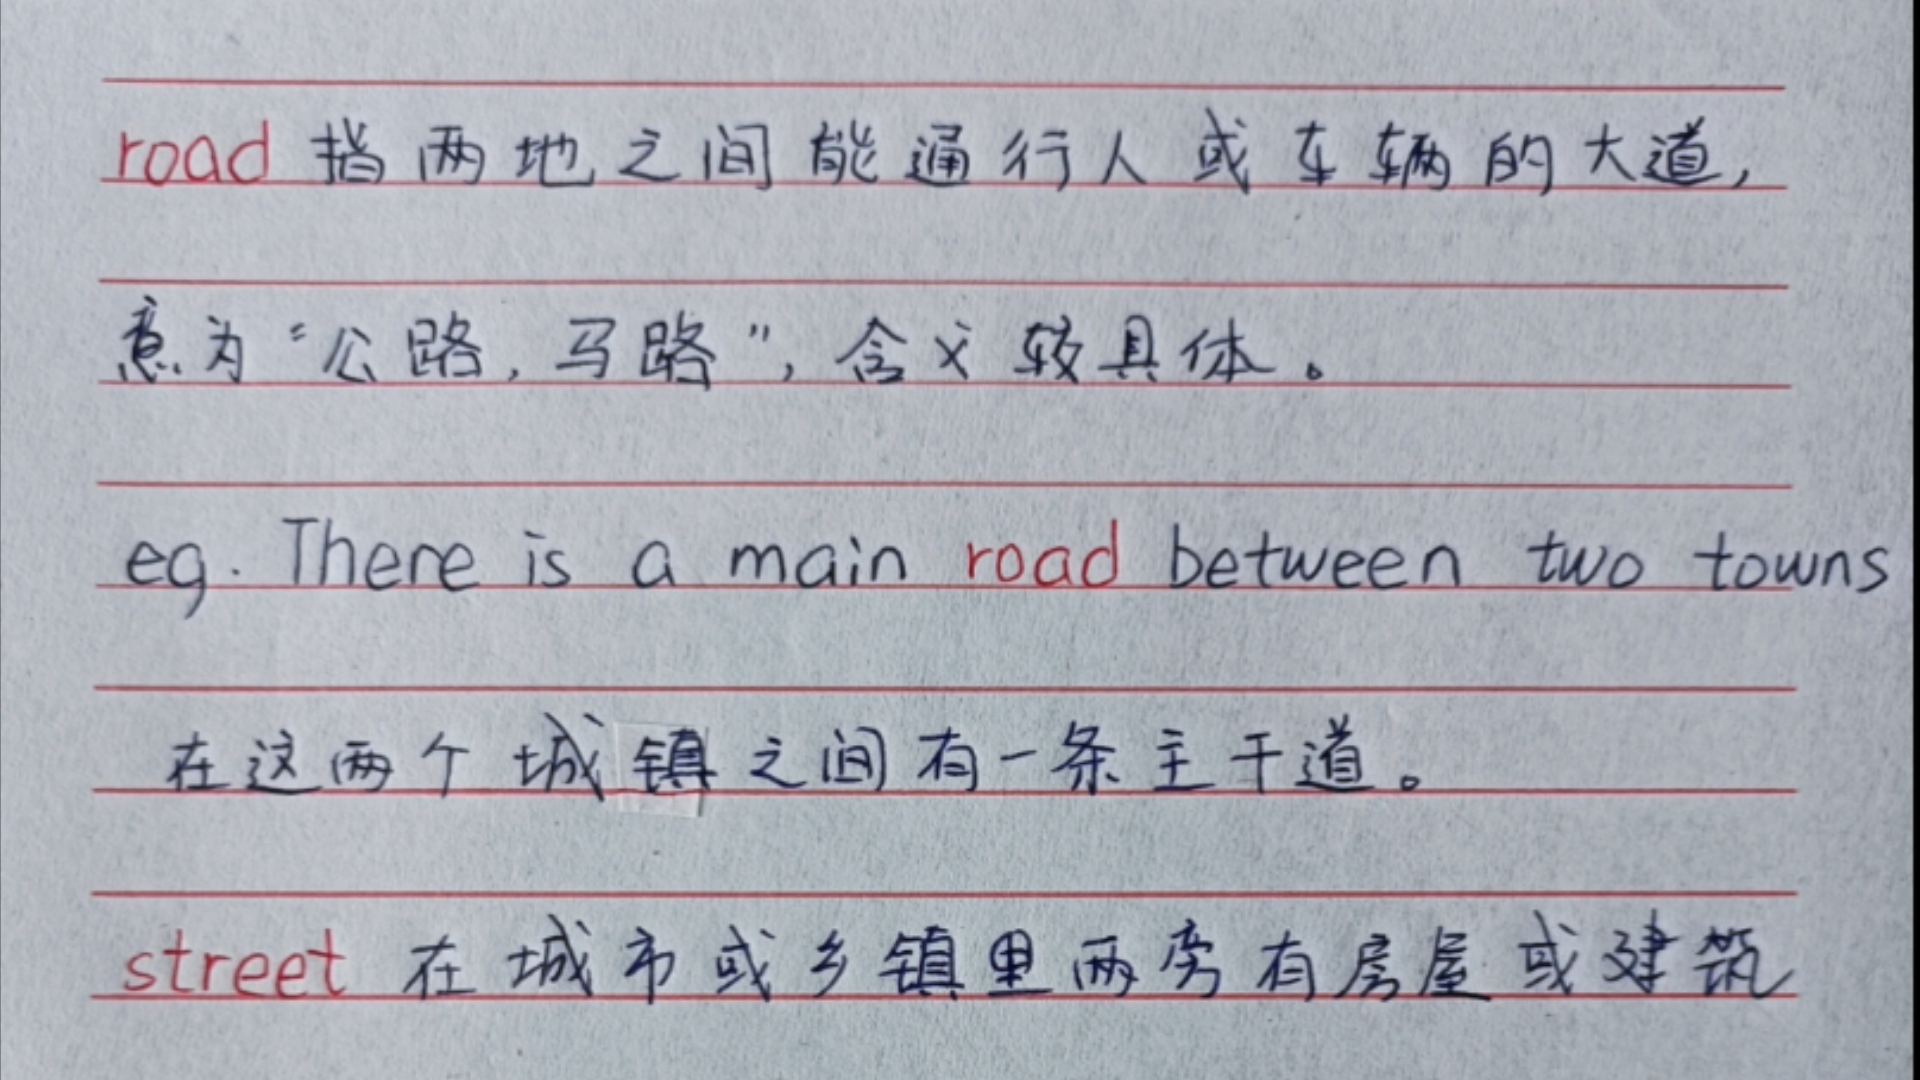 road 指两地之间能通行人或车辆的大道,
意为“公路,马路”,含义较具体。
eg. There is a main road between two towns
在这两个城镇之间有一条主干道。
street 在城市或乡镇里两旁有房屋或建筑